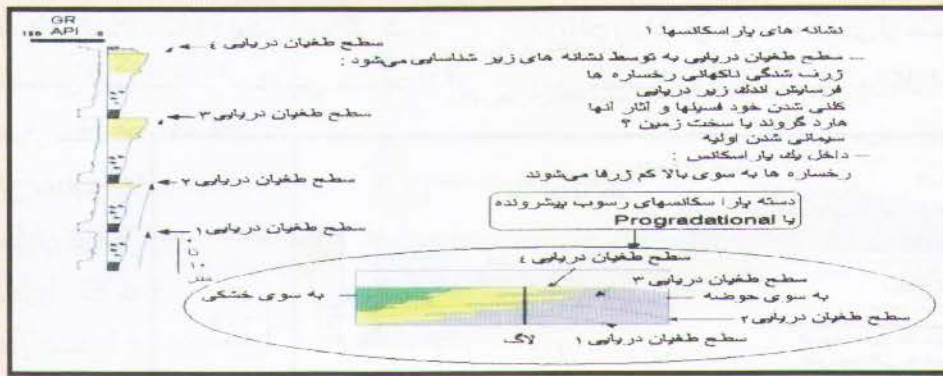 GR
API
150 0
سطح طغیان دریایی ۴
سطح طغیان دریایی ۳
سطح طغیان دریایی ۲
سطح طغیان دریایی ۱
تا
۱۰
متر
نشانه های پاراسکانسها ۱
— سطح طغیان دریایی به توسط نشانه های زیر شناسایی می‌شود :
ژرف شدگی ناگهانی رخساره ها
فرسایش اندک زیر دریایی
کلنی شدن خود فسیلها و آثار آنها
هارد گروند یا سخت زمین ؟
سیمانی شدن اولیه
— داخل یک پاراسکانس :
رخساره ها به سوی بالا کم ژرفا می‌شوند
دسته پارا سکانسهای رسوب پیشرونده
یا Progradational
سطح طغیان دریایی ٤
سطح طغیان دریایی ۳
به سوی حوضه
به سوی خشکی
سطح طغیان دریایی ۲
سطح طغیان دریایی ۱
لاگ